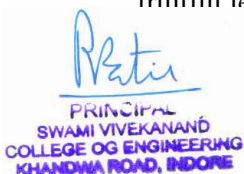 PRINCIPAL
SWAMI VIVEKANAND
COLLEGE OG ENGINEERING
KHANDWA ROAD, INDORE